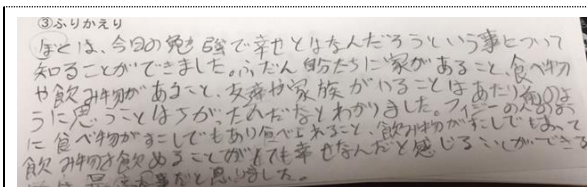 ③ふりかえり
ぼくは、今日の勉強で幸せとはなんだろうという事について
知ることができました。ふだん自分たちに家があること、食べ物
や飲み物があること、友達や家族がいることはあたり前のよ
うに思うことはちがったんだなとわかりました。フィジーの人のよう
に食べ物がすこしでもあり食べられること、飲み物がすこしでもあって
飲み物を飲めることがとても幸せなんだと感じることができる
事だと思いました。